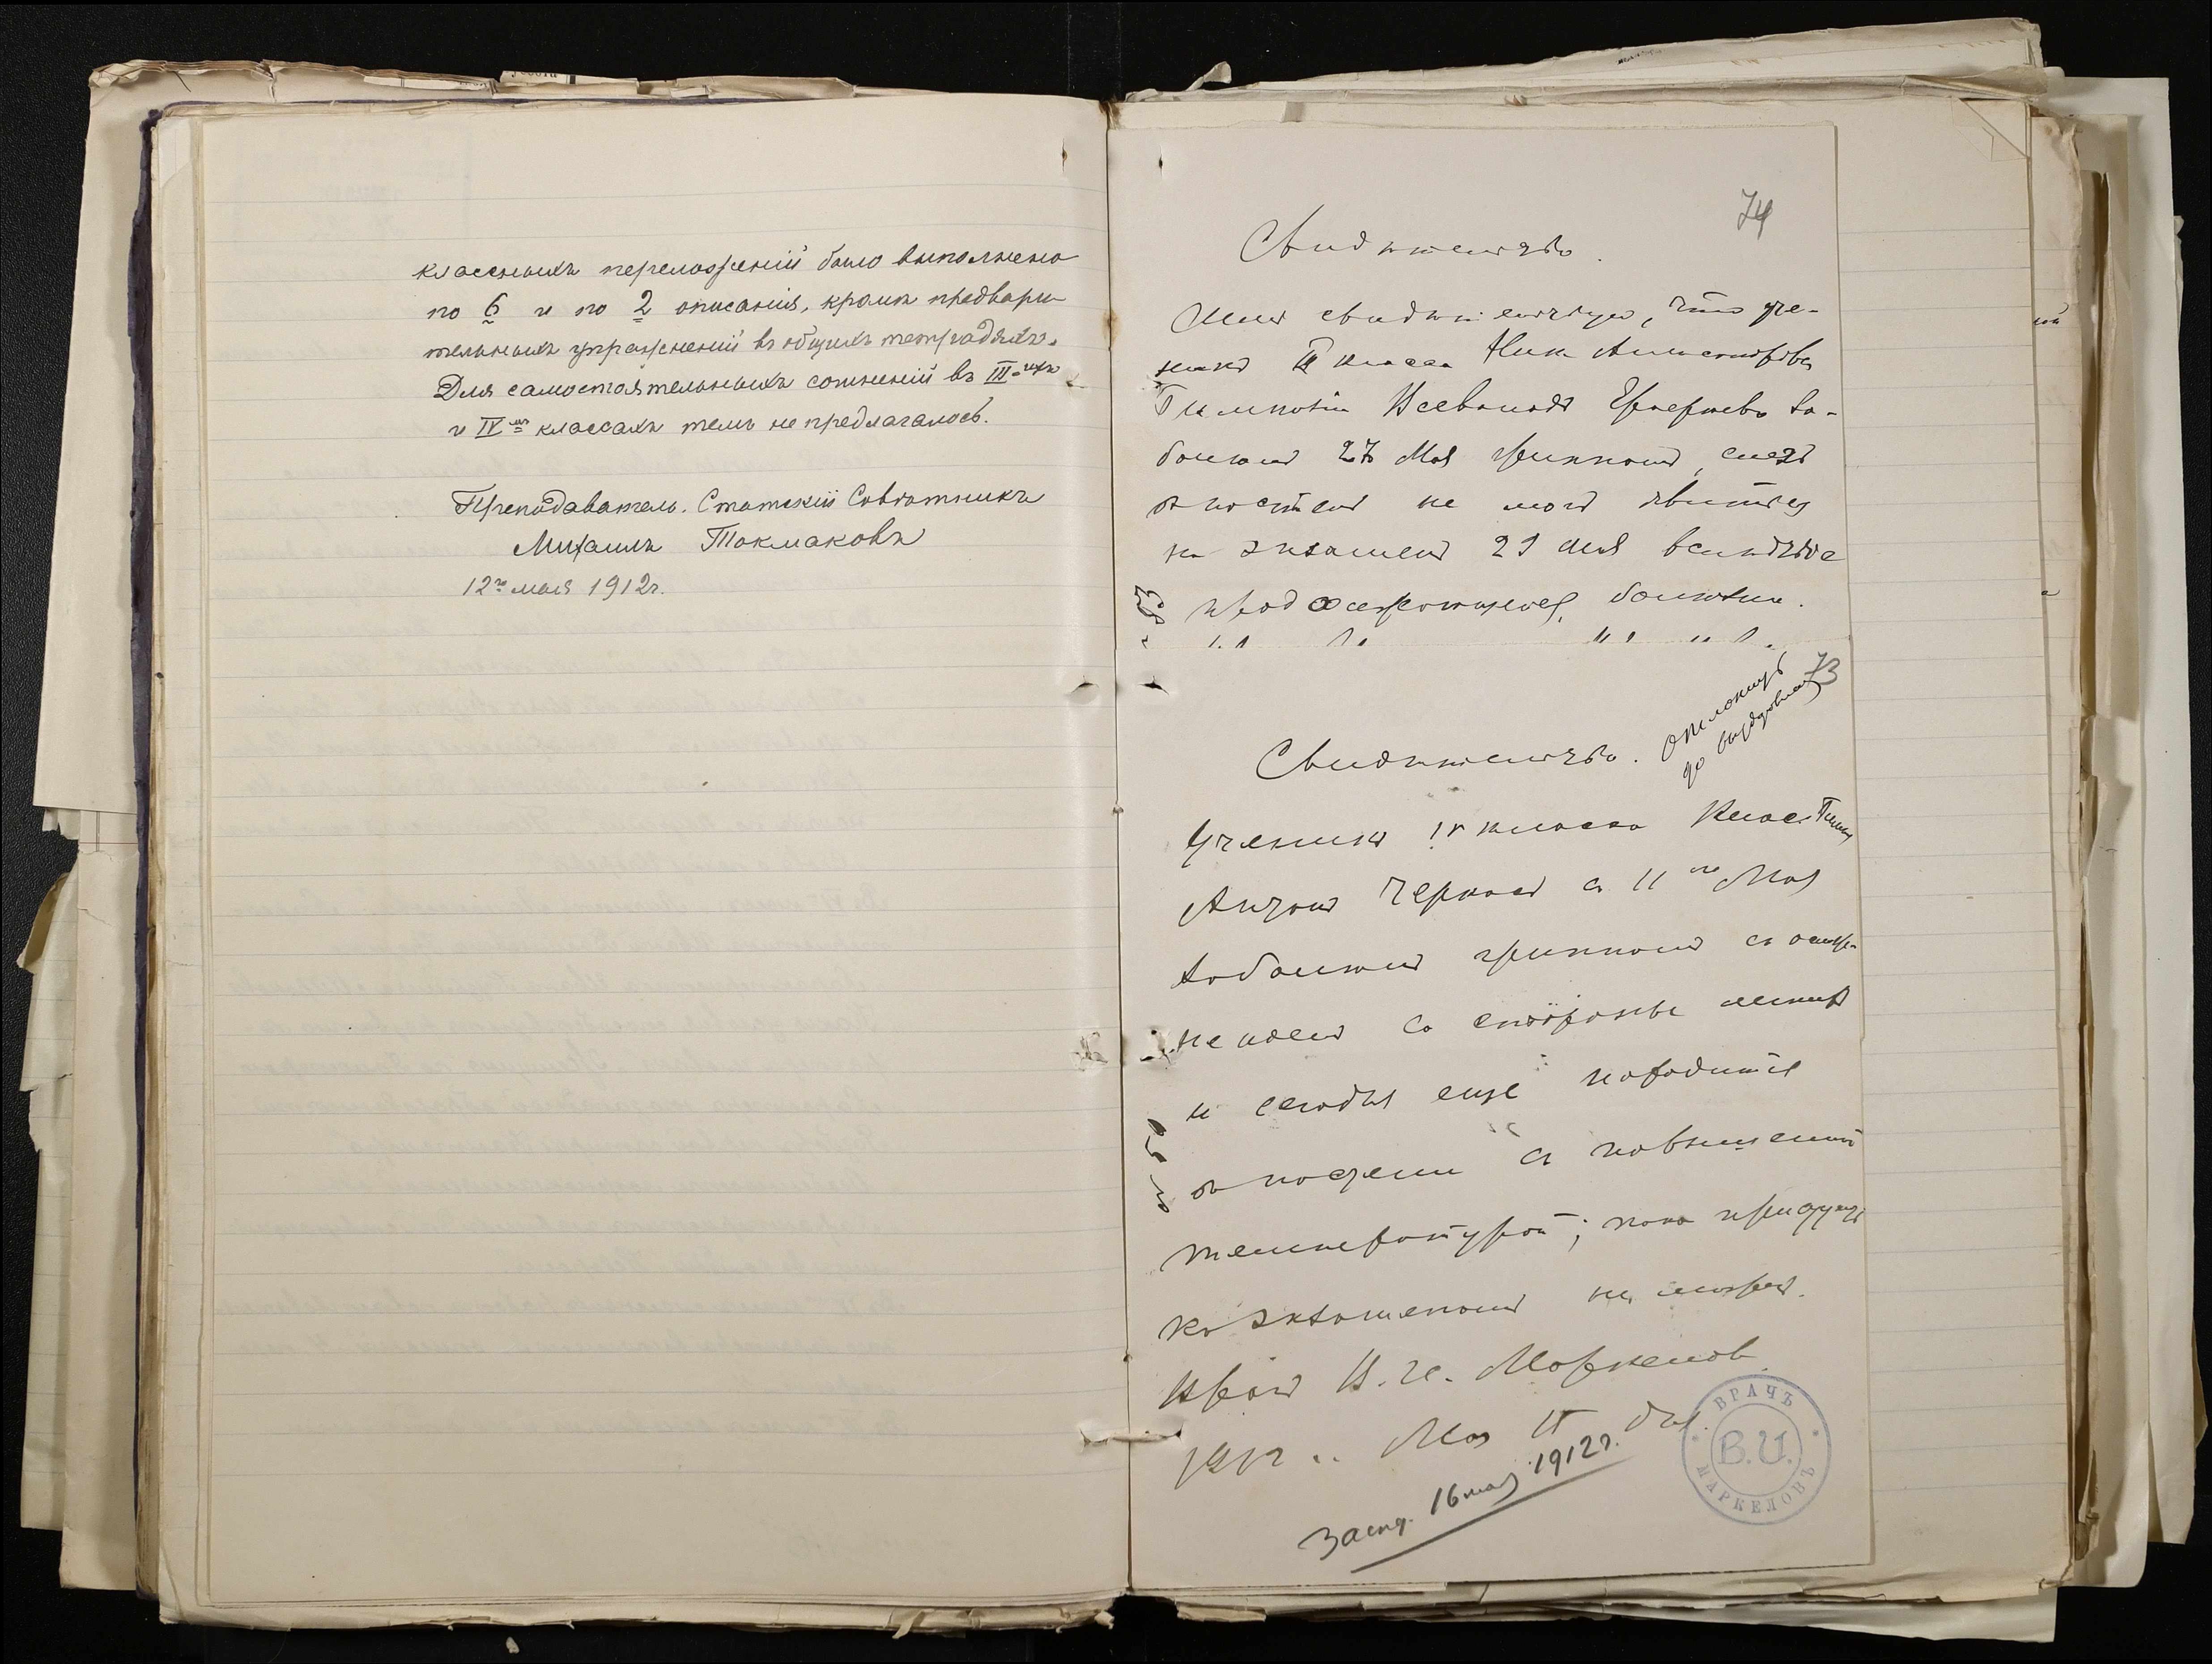 классныхъ переложеній было выполнено
по 6 и по 2 описанія, кромѣ предвари-
тельныхъ упражненій въ общихъ тетрадяхъ.
Для самостоятельныхъ сочиненій въ III-мъ
и IV-мъ классахъ темъ не предлагалось.
Преподаватель. Статскій Совѣтникъ
Михаилъ Токмаковъ
12го мая 1912г.
74
Свидѣтельство.
Симъ свидѣтельствую, что уче-
никъ III класса Ник. Алексан
Гимназіи Всеволодъ за-
болѣлъ 27 Мая гриппомъ, слегъ
въ постель не могъ явиться
на экзаменъ 29 мая вслѣдствіе
продолжающейся болѣзни.
73
отложить
до выздоровленія
Свидѣтельство.
Ученикъ IV класса Класс. Гимн
Антонъ Черновъ съ 11го Мая
заболѣлъ гриппомъ съ ослож-
неніемъ со стороны легкихъ
и сегодня еще находится
въ постели съ повышенной
температурой; пока приступить
къ экзаменамъ не можетъ.
Врачъ В. И. Маркеловъ.
1912 г. Мая 15 дня.
Засѣд. 16 мая 1912г.
ВРАЧЪ
В.И.
МАРКЕЛОВЪ